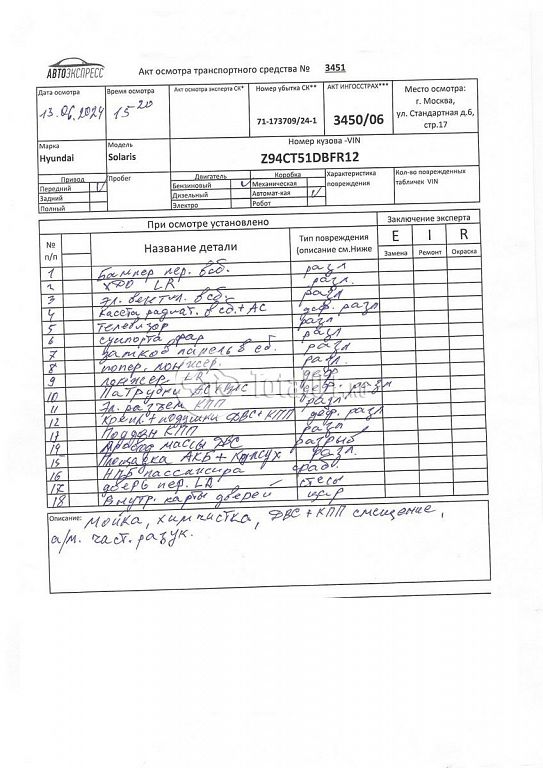 АВТОЭКСПРЕСС
Акт осмотра транспортного средства № 3451
Дата осмотра
13.06.2024
Время осмотра
15-20
Акт осмотра эксперта СК*
Номер убытка СК**
71-173709/24-1
АКТ ИНГОССТРАХ***
3450/06
Место осмотра:
г. Москва,
ул. Стандартная д.6,
стр.17
Марка
Hyundai
Модель
Solaris
Номер кузова -VIN
Z94CT51DBFR12
Привод
Передний V
Задний
Полный
Пробег
Двигатель
Бензиновый V
Дизельный
Электро
Коробка
Механическая
Автомат-кая V
Робот
Характеристика
повреждения
Кол-во поврежденных
табличек VIN
При осмотре установлено
Заключение эксперта
№
п/п
Название детали
Тип повреждения
(описание см.Ниже
E I R
Замена Ремонт Окраска
1 Бампер пер. в сб. разл
2 LR разл.
3 Эл. вент. в сб. разл
4 Кассета радиат. в сб. + АС деф. разл
5 Телевизор разл.
6 суппорта фар разл
7 в сб. разл
8 попер. лонжер. разл.
9 лонжер. LR деф
10 Патрубки АС деф. разл
11 Эл. разъем КПП разл
12 подушки ДВС + КПП деф. разл
13 Поддон КПП разл
14 Провод массы ДВС
15 Площадка АКБ + Кожух разл.
16 НПБ пассажира сраб.
17 дверь пер. LR
18 Внутр. карты дверей цар
Описание: Мойка, химчистка, ДВС + КПП смещение,
а/м. част. разук.